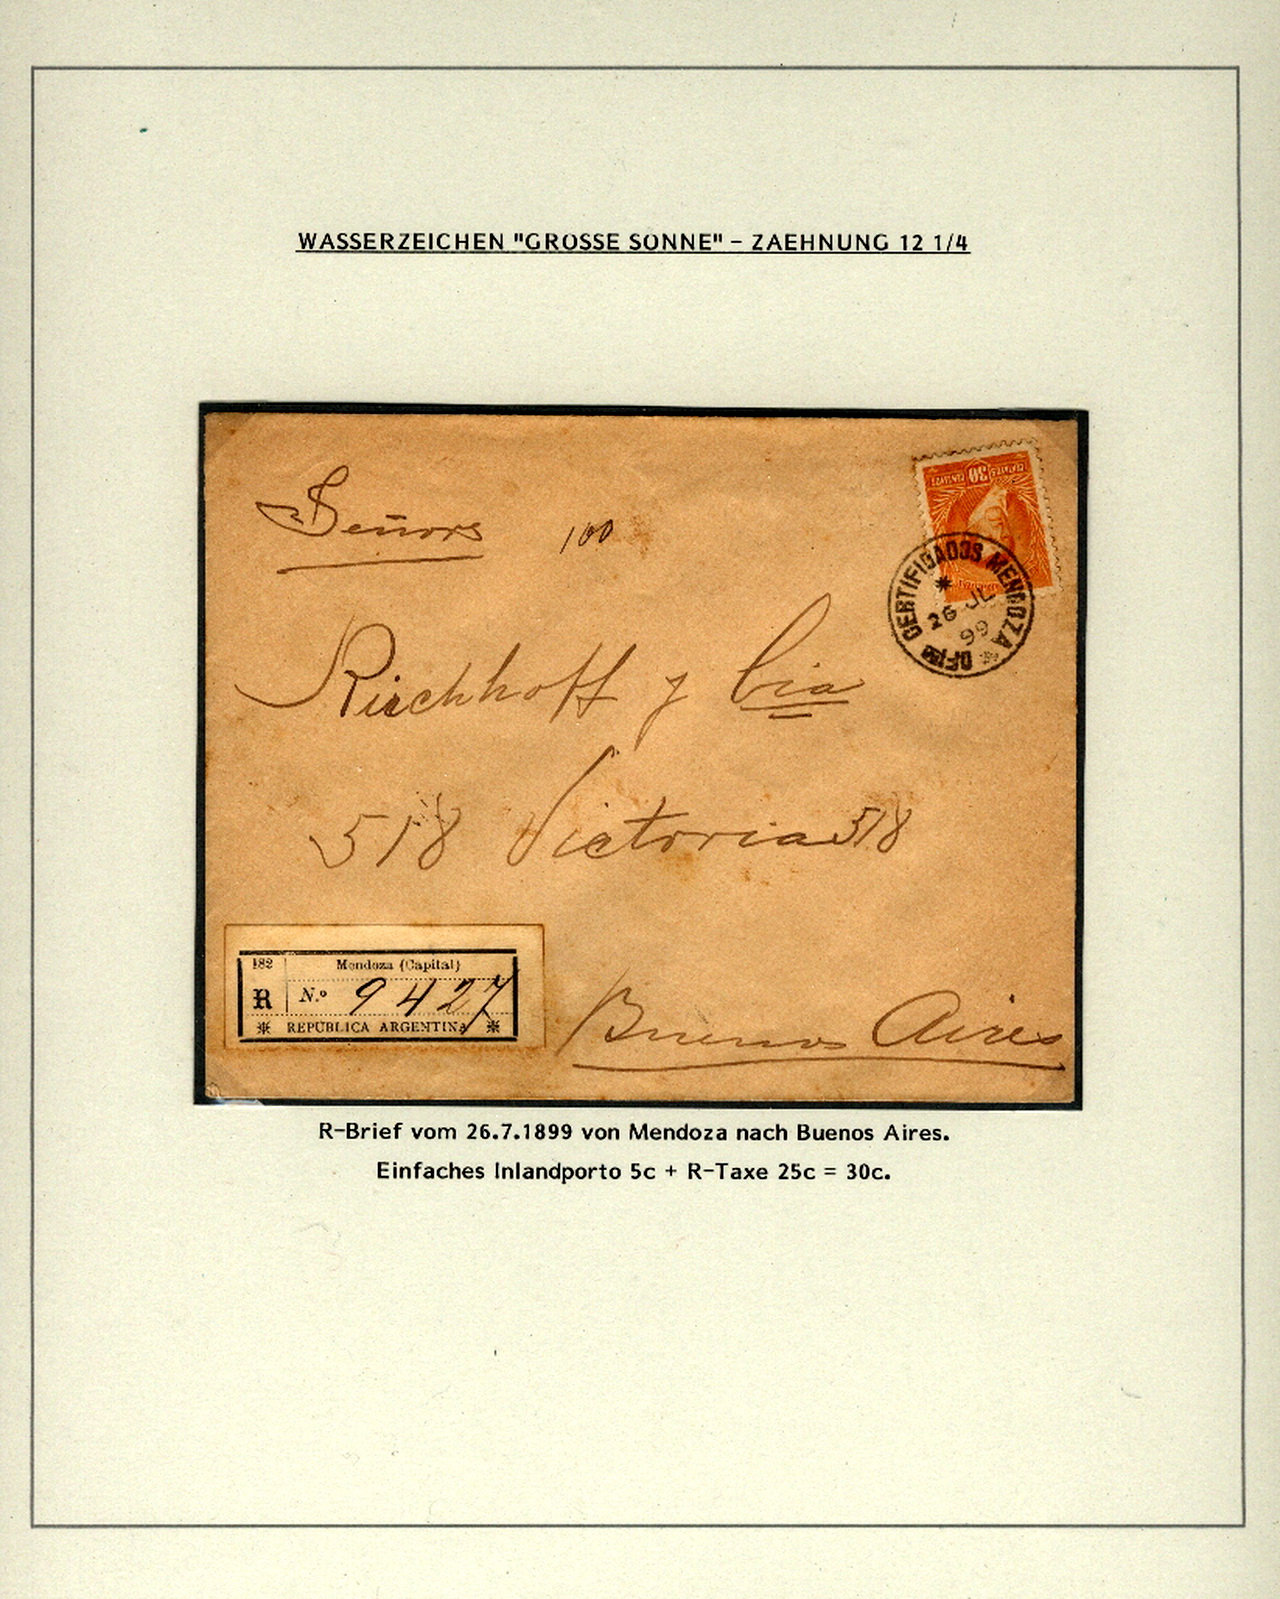 WASSERZEICHEN "GROSSE SONNE" – ZAEHNUNG 12 1/4
Señors 100
30
CENTAVOS CENTAVOS
CERTIFICADOS MENDOZA
26 JL
99
Kirchhoff y Cia
518 Victoria 518
182 Mendoza (Capital)
R N.o 9427
REPÚBLICA ARGENTINA
Buenos Aires
R-Brief vom 26.7.1899 von Mendoza nach Buenos Aires.
Einfaches Inlandporto 5c + R-Taxe 25c = 30c.